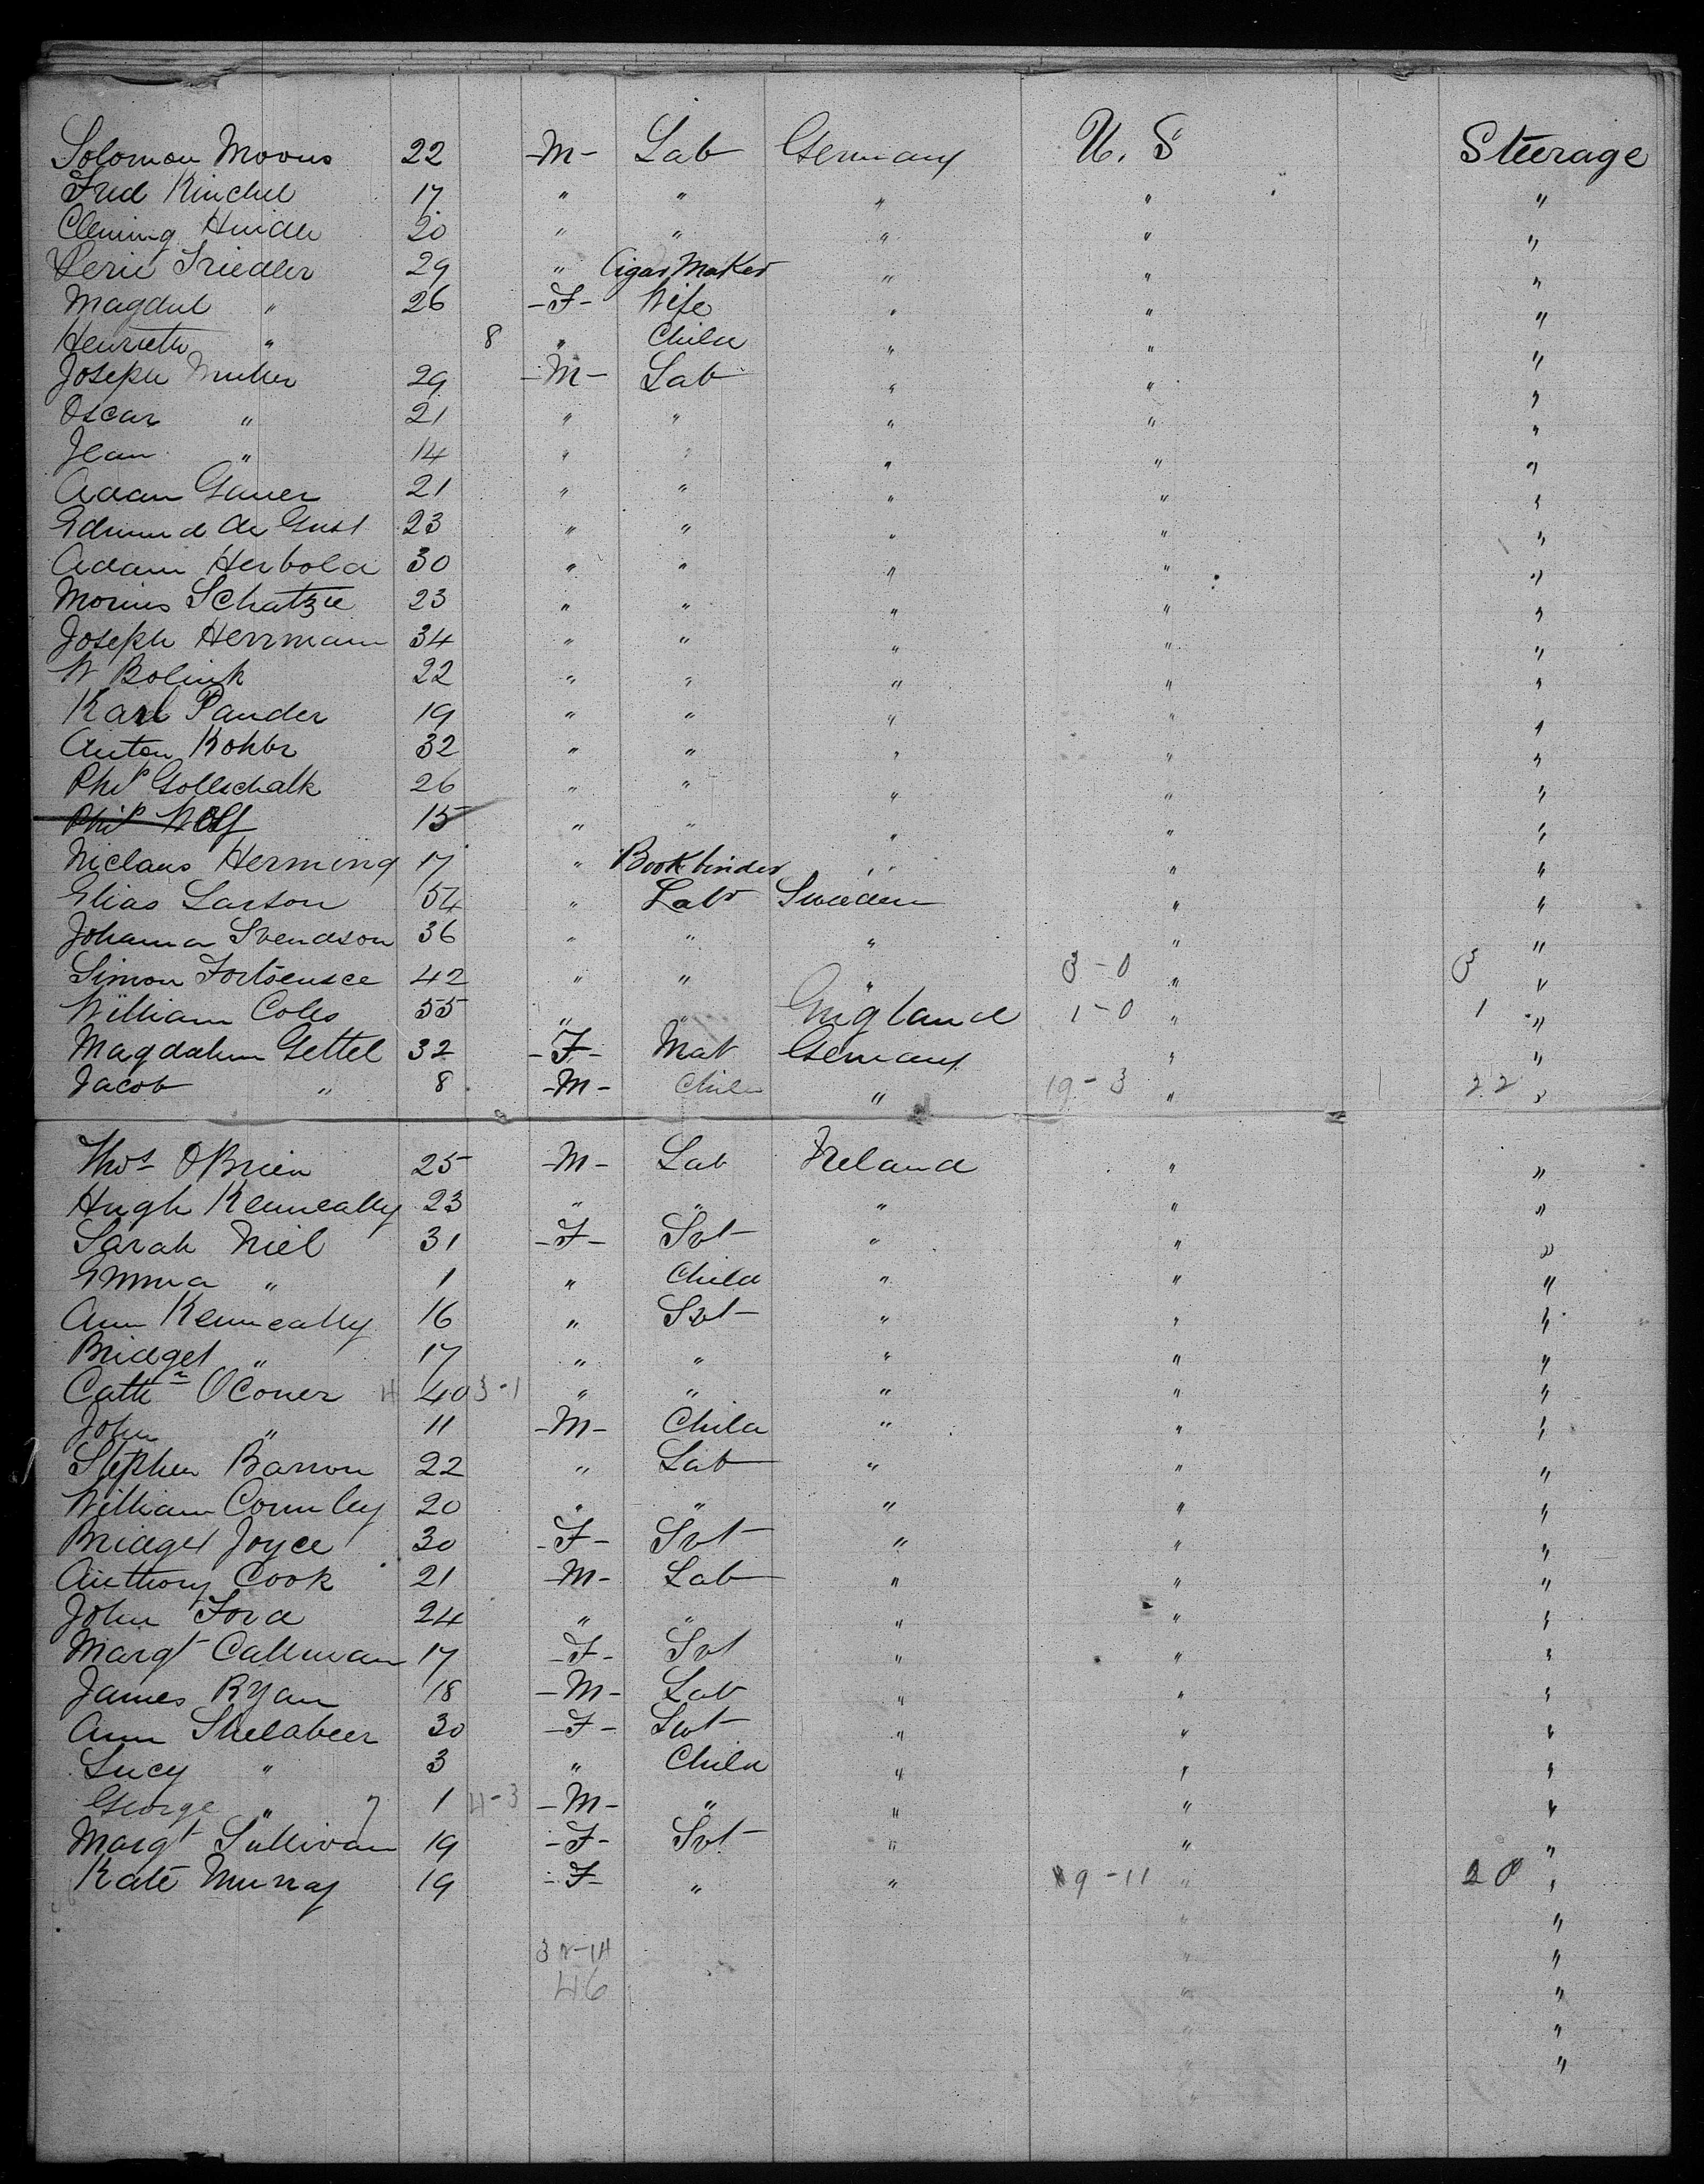 Solomon Moous 22 -M- Lab Germany U. S Steerage
Fred Kinchel 17 " " " " "
Cleming Huider 20 " " " " "
Friedler 29 " Cigar Maker " " "
Magdul " 26 -F- Wife " " "
Henrietta " 8 " Child " " "
Joseph Muller 29 -M- Lab " " "
Oscar " 21 " " " " "
Jean " 14 " " " " "
Adam Gauer 21 " " " " "
Edmund de Gust 23 " " " " "
Adam Herbold 30 " " " " "
Morius Schatzie 23 " " " " "
Joseph Herrmann 34 " " " " "
W Bolink 22 " " " " "
Karl Pander 19 " " " " "
Anton Kohbr 32 " " " " "
Philp Gollschalk 26 " " " " "
Philp Wolf 15 " " " " "
Niclaus Herming 17 " Bookbinder " " "
Elias Larson 54 " Labr Sweden " "
Johanna Svendson 36 " " " " "
Simon 42 " " " 3-0 " 3 "
William Coles 55 " " England 1-0 " 1 "
Magdalena Gettel 32 -F- Mat Germany " "
Jacob " 8 -M- Child " 19-3 " 22 "
Thos OBrien 25 -M- Lab Ireland " "
Hugh Kenneally 23 " " " " "
Sarah Niel 31 -F- Svt " " "
Emma " 1 " Child " " "
Ann Kenneally 16 " Svt " " "
Bridget " 17 " " " " "
Cathn OConer 4 40 3-1 " " " " "
John " 11 -M- Child " " "
Stephen Barron 22 " Lab " " "
William Cormley 20 " " " " "
Bridget Joyce 30 -F- Svt " " "
Anthony Cook 21 -M- Lab " " "
John Ford 24 " " " " "
Margt Callman 17 -F- Svt " " "
James Ryan 18 -M- Lab " " "
Ann Shelabeer 30 -F- Svt " " "
Lucy " 3 " Child " " "
George " 7 1 4-3 -M- " " " "
Margt Sullivan 19 -F- Svt " " "
Kate Murray 19 -F- " " 9-11 " 20 "
" "
32-14 " "
46 " "
" "
" "